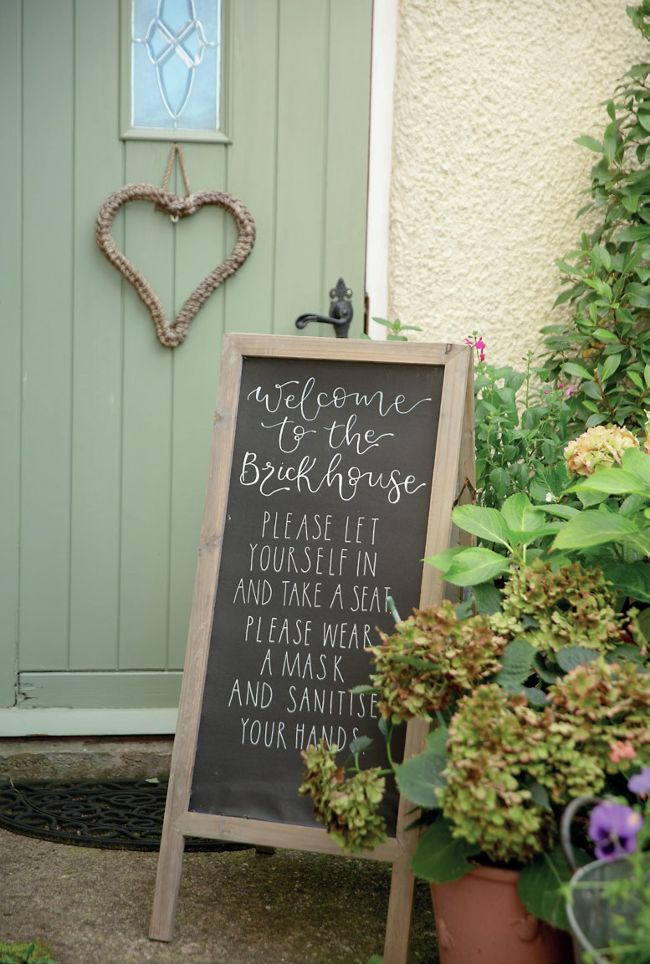 Welcome
to the
Brickhouse
PLEASE LET
YOURSELF IN
AND TAKE A SEAT
PLEASE WEAR
A MASK
AND SANITISE
YOUR HANDS